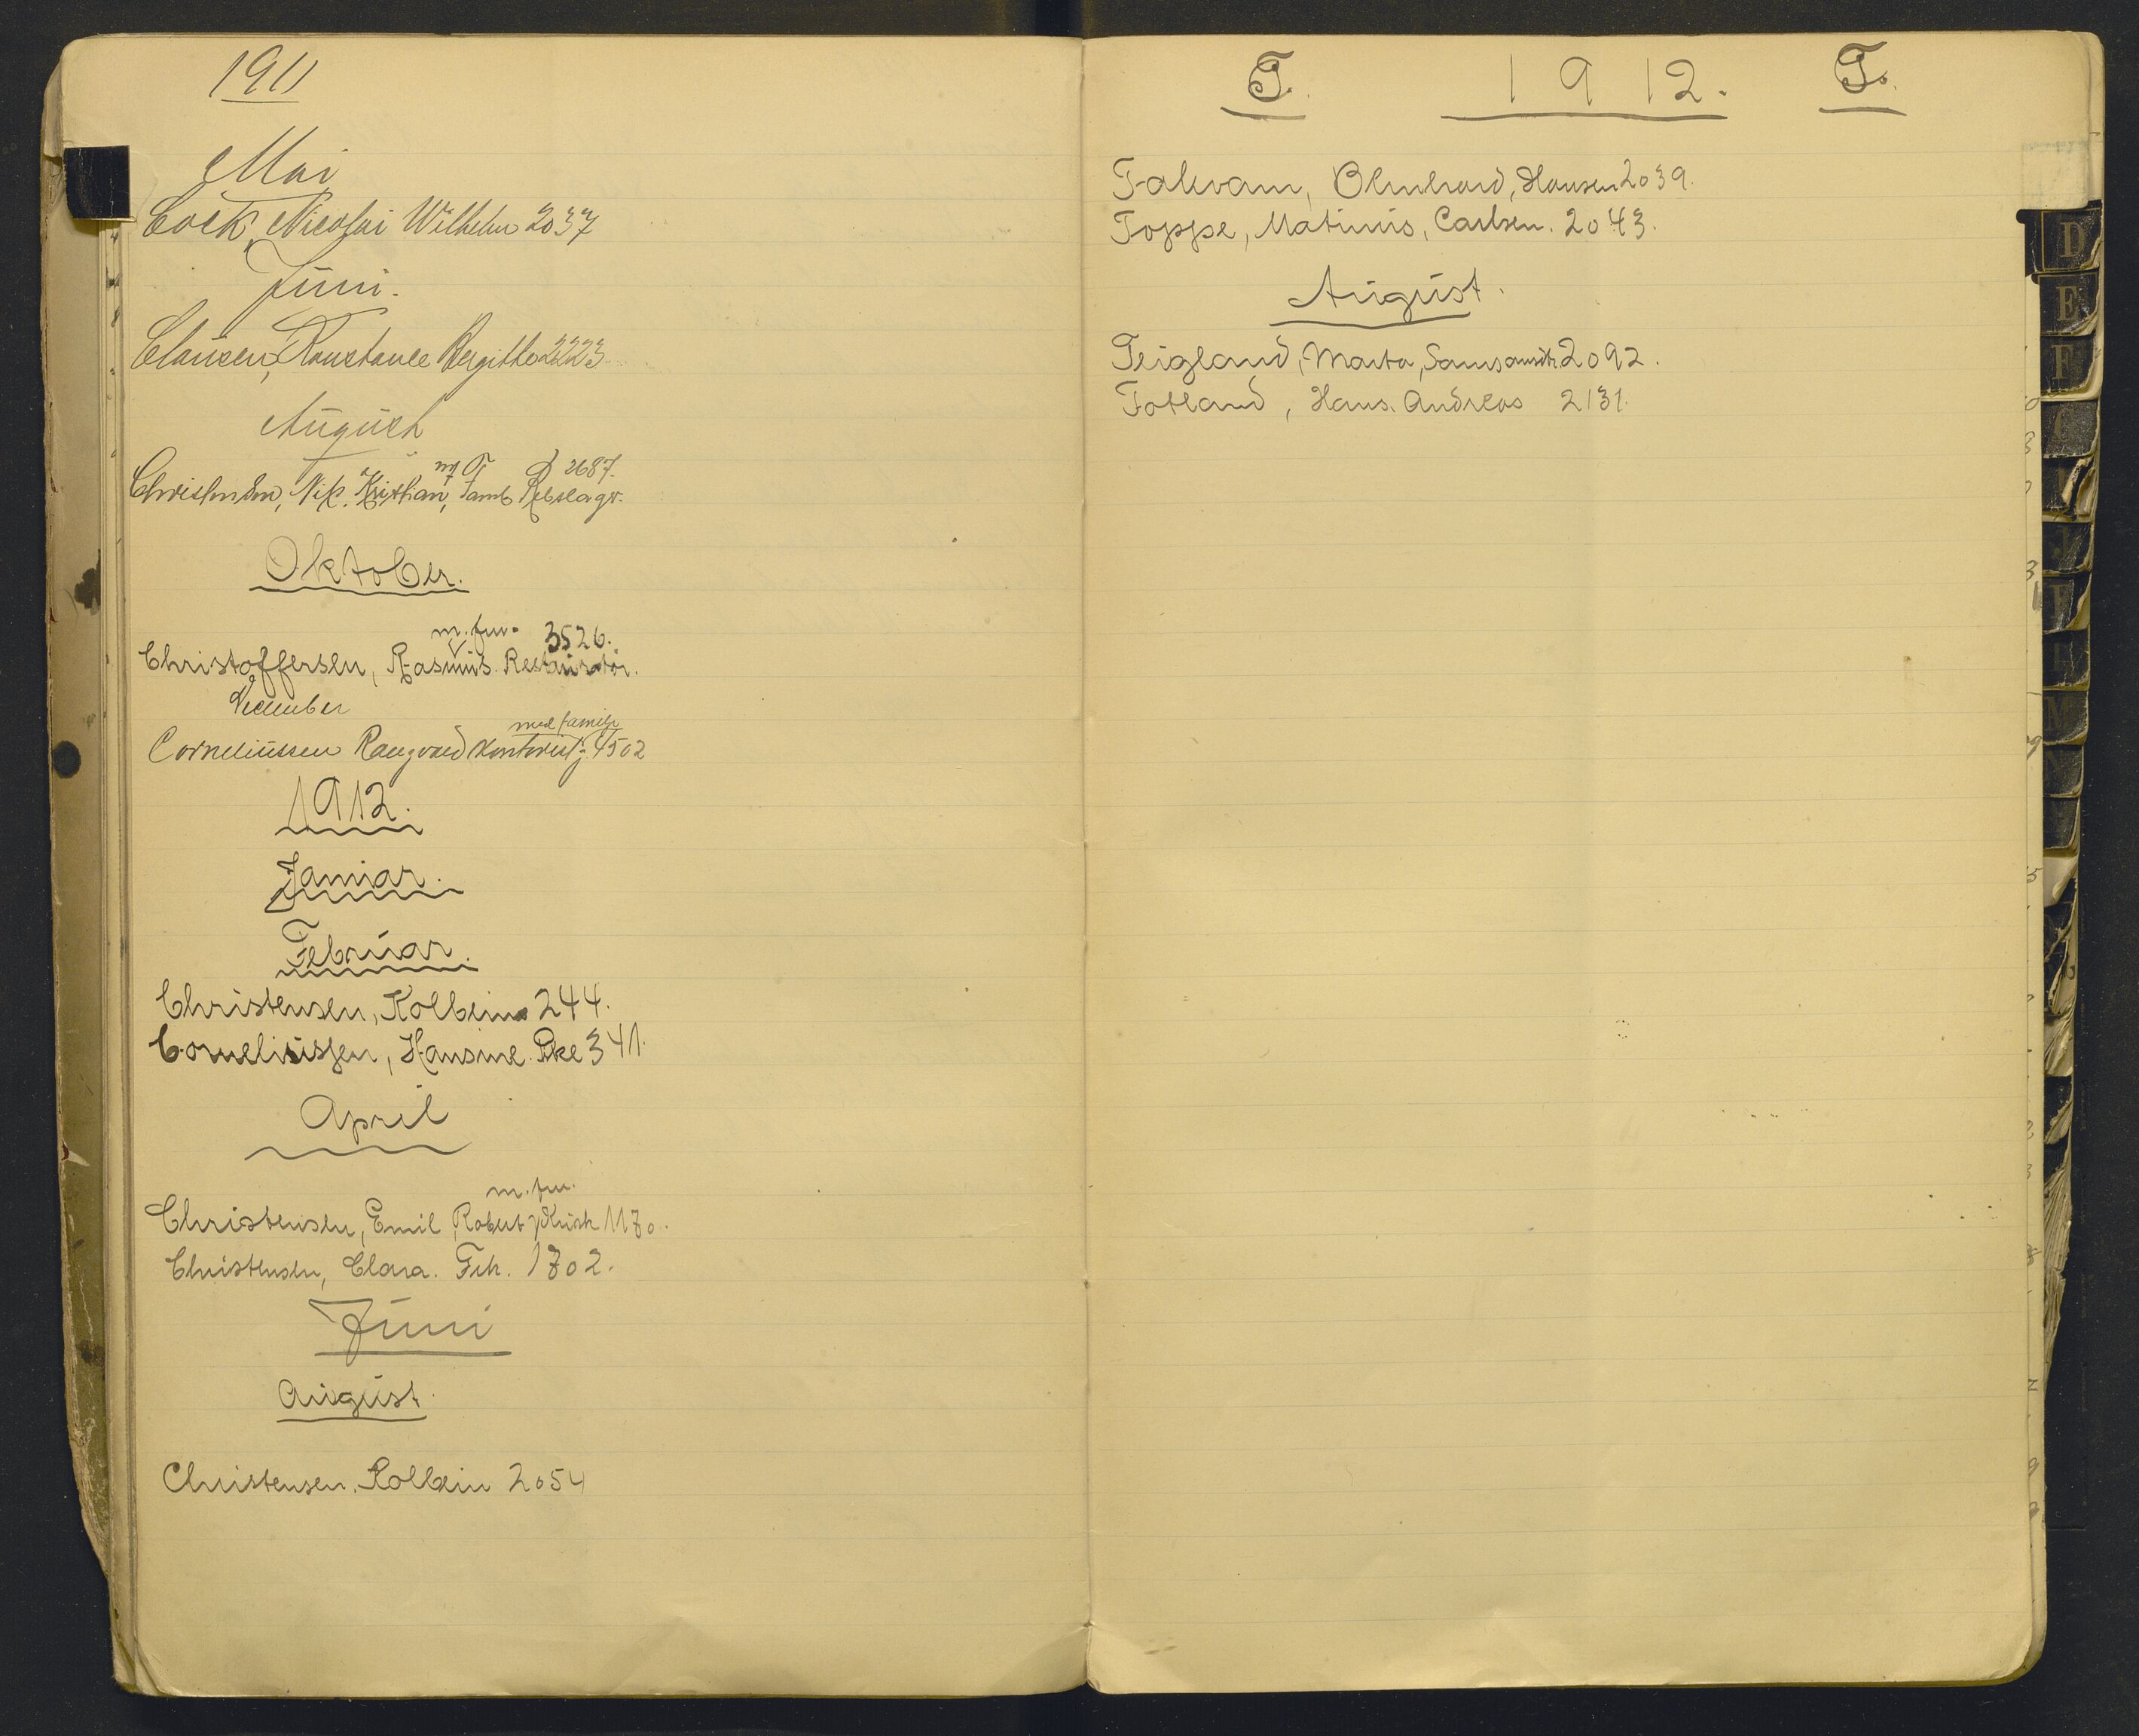 1911
Mai
Cock, Nicolai Wilhelm 2037
Juni.
Clausen, Konstance Bergithe 2223.
August
2687.
Christensen, Nik. Kristian, Rebslagr.
Oktober.
m. fru. 3526.
Christoffersen, Rasmus. Restauratør.
December
med familje
Corneliussen Rangvald Kontorist 4502
1912.
Januar.
Februar.
Christensen, Kolbein 244.
Corneliussen, Hansine. Pike 341.
April
m. fru.
Christensen, Emil, Robert 1170.
Christensen, Clara. Frk. 1702.
Juni
August.
Christensen, Kolbein 2054
T. 1912. T.
Takvam, Hansen 2039.
Toppe, Matinus, Carlsen. 2043.
August.
Teigland, Marta, Samsonsdtr. 2092.
Totland, Hans. Andreas 2131.
D
E
F
M